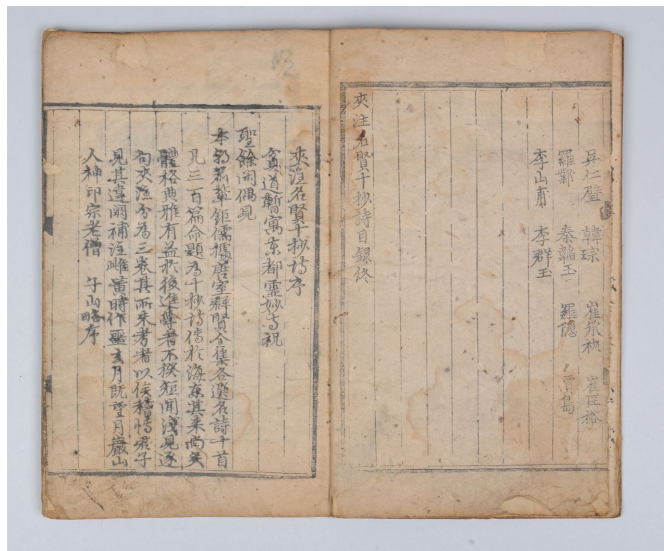 吳仁璧 韓琮 崔承祐 崔匡裕
羅鄴 秦韜玉 羅隱 賈島
李山甫 李群玉
夾注名賢十抄詩目錄終
夾注名賢十抄詩序
貧道暫寓東都靈妙寺祝
聖餘閑偶見
本朝名輩鉅儒據唐室群賢全集各選名詩十首
凡三百篇命題為十抄詩傳於海東其來尚矣
體格典雅有益於後進學者不揆短聞淺見逐
句夾注分為三卷其所未考者以俟稽博君子
見其違闕補注雌黃時作噩玄月既望月巖山
人神印宗老僧 子山略序